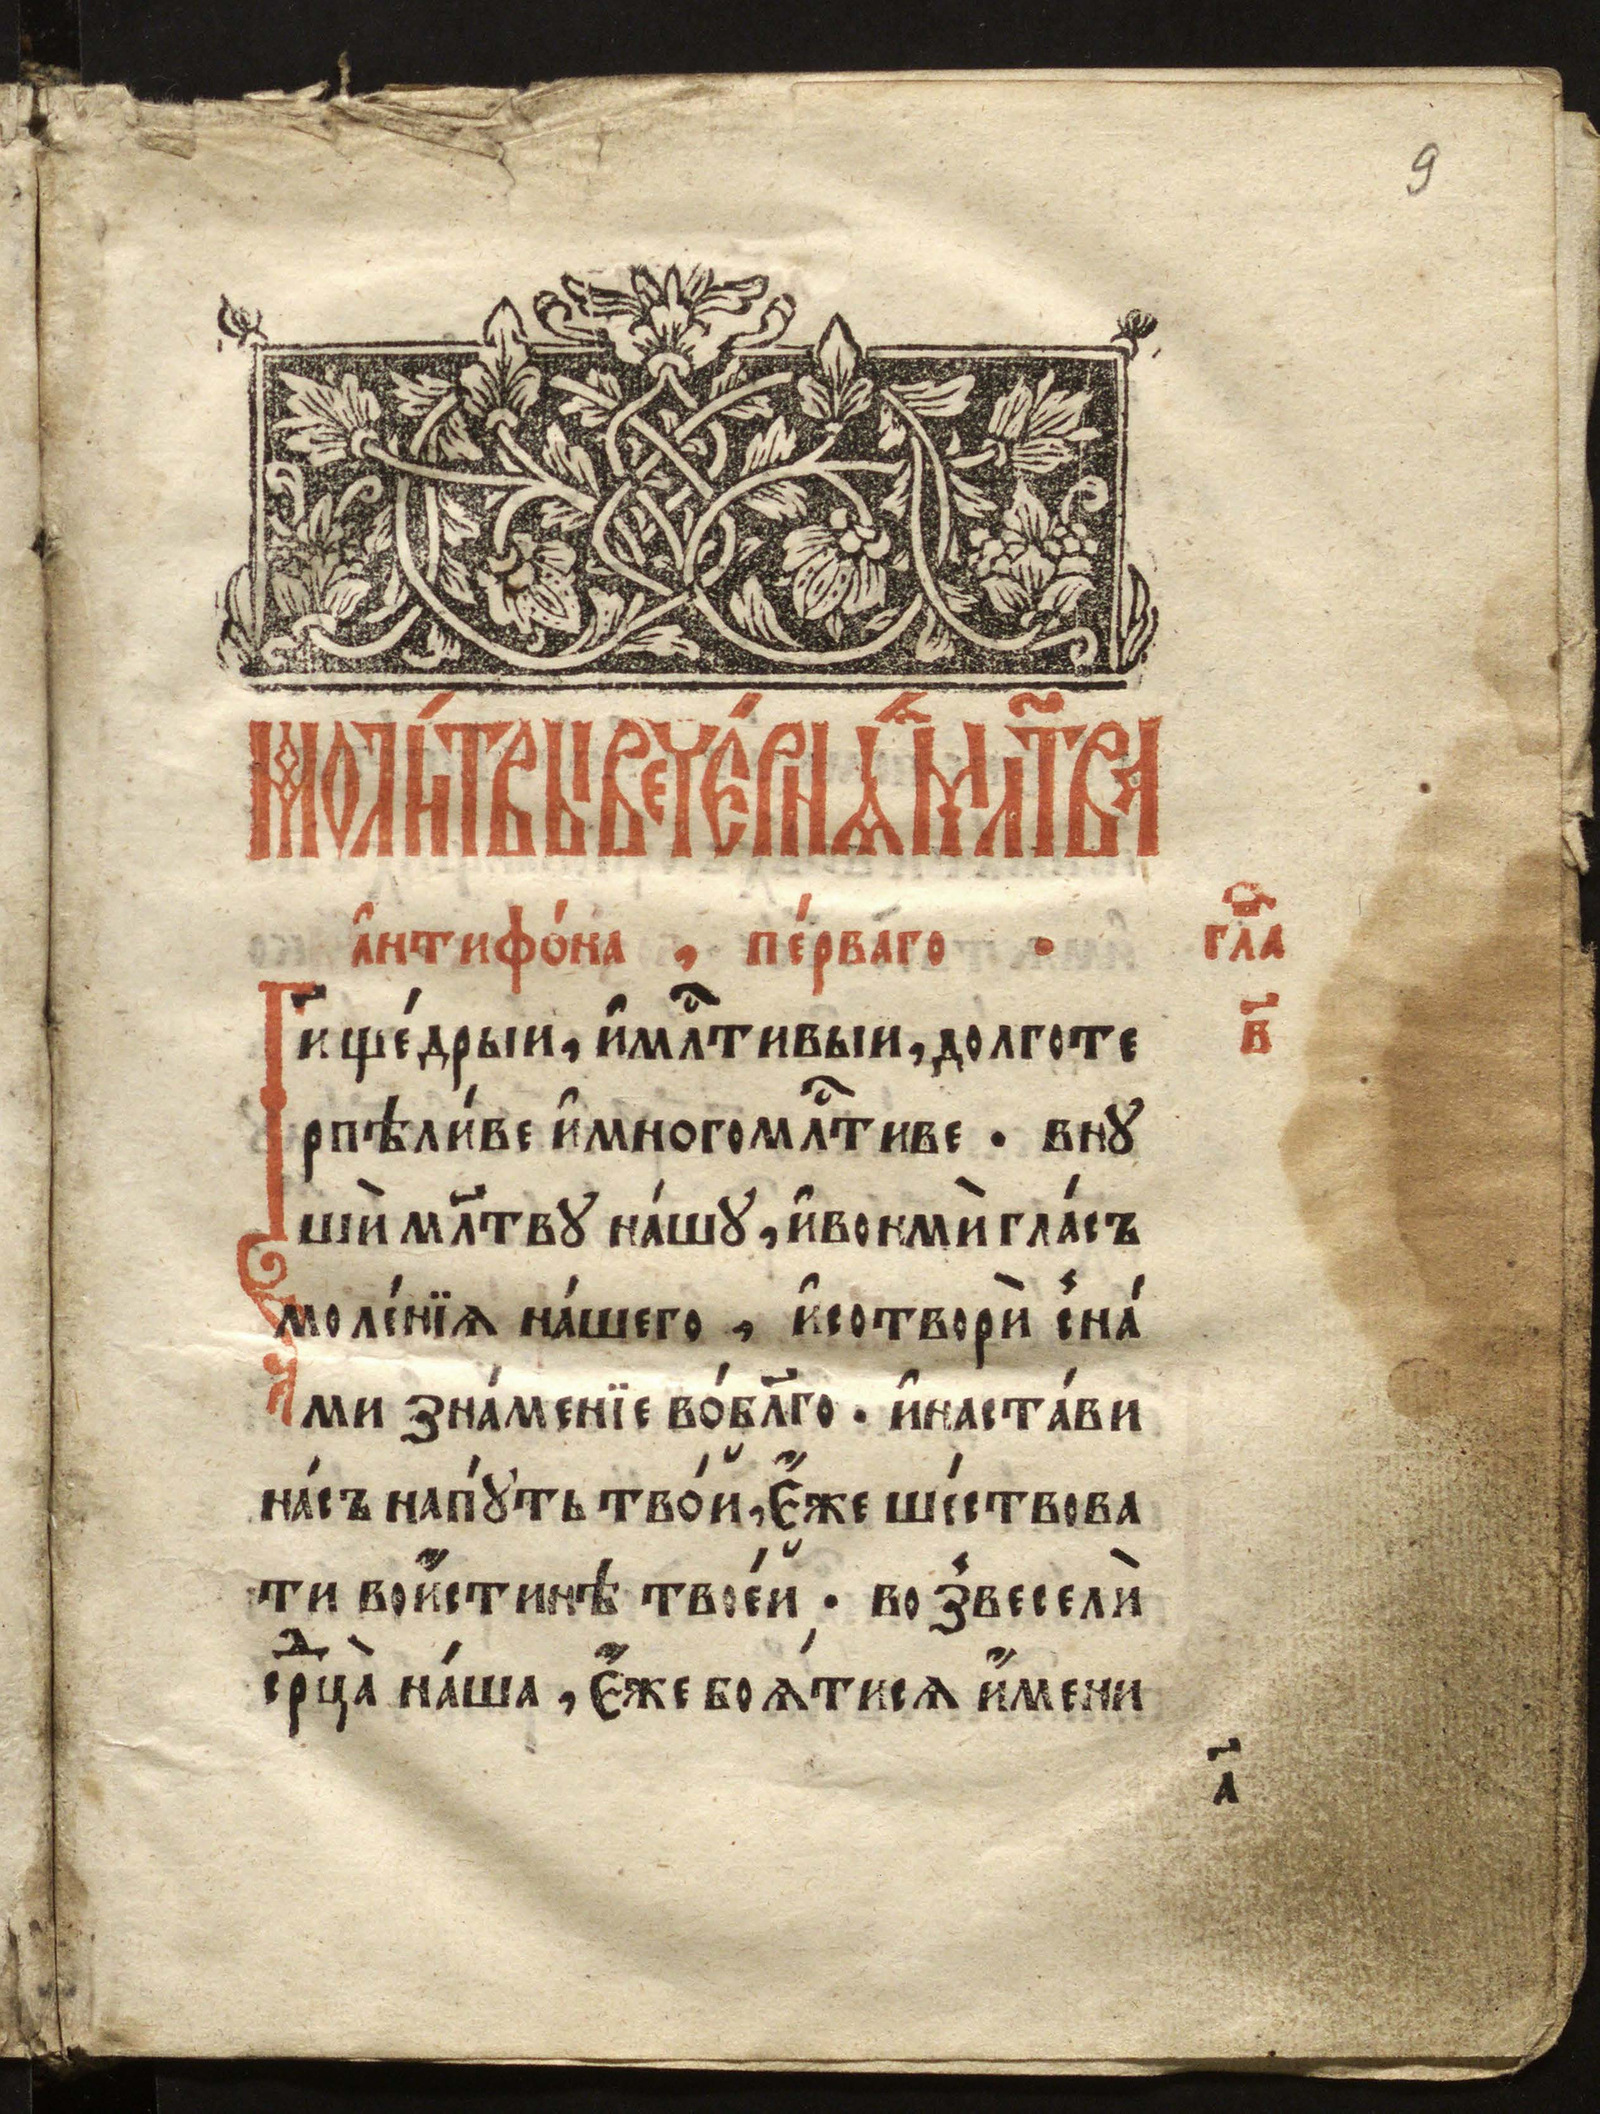 9
моли́твы вече́рнѧ҄ мл҃тва
а҆нтифо́на , пе́рваго ·
гла҃
в҃
Г҃и ще́дрыи, и҆млⷭ҇тивыи, долготе
рпѣли́ве и҆многомлⷭ҇тиве . внꙋ
шѝ мл҃твꙋ на́шꙋ, и҆вонмѝ гла́съ
моле́нїѧ на́шего , и҆сотворѝ сна́
ми зна́менїе во́бл҃го . и҆наста́ви
на́съ напꙋ́ть тво́й, є҆́же ше́ствова
ти вои҆́стинѣ твое́й . возвеселѝ
срⷣца̀ на́ша , є҆́же боѧ́тисѧ и҆́мени
а҃